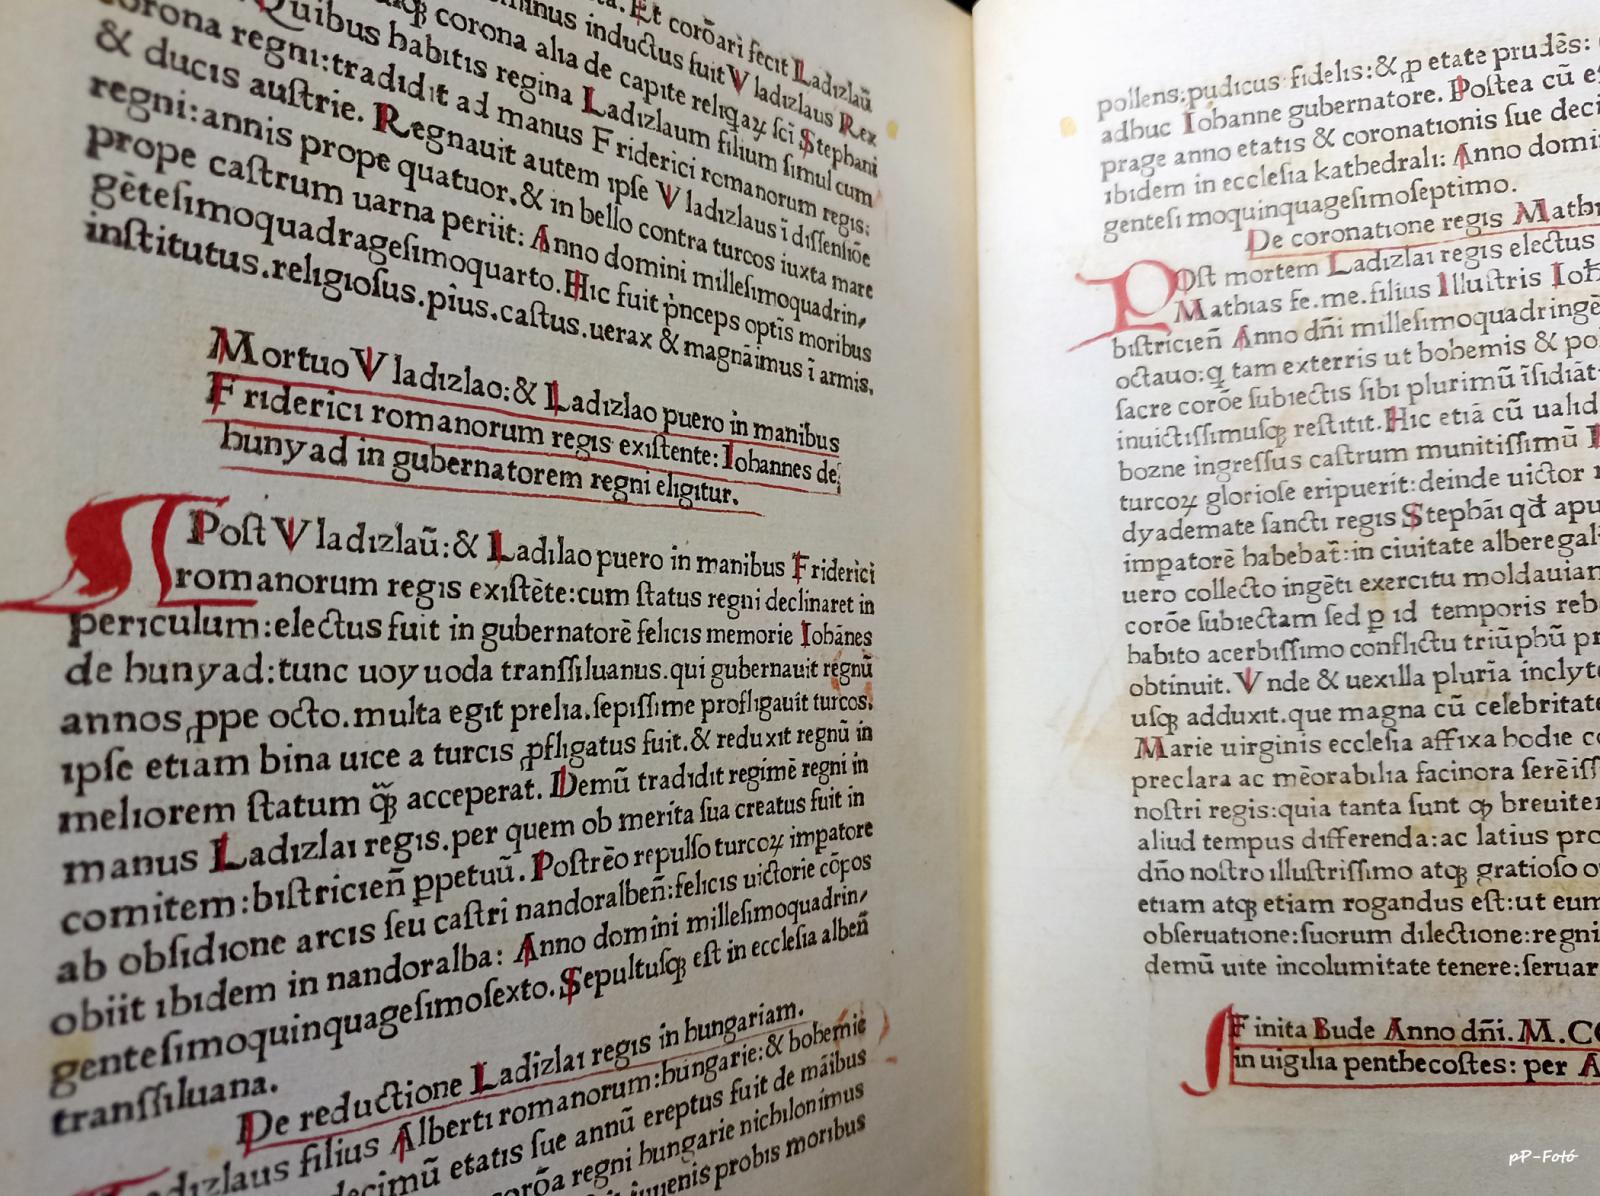 Et corōari fecit Ladizlaū
inductus fuit Vladizlaus Rex
corona alia de capite reliqaꝝ sci Stephani
Quibus habitis regina Ladizlaum filium simul cum
corona regni:tradidit ad manus Friderici romanorum regis:
& ducis austrie. Regnauit autem ipse Vladizlaus ī dissensiōe
regni:annis prope quatuor.& in bello contra turcos iuxta mare
prope castrum uarna periit: Anno domini millesimoquadrin,
gētesimoquadragesimoquarto.Hic fuit p̄nceps optīs moribus
institutus.religiosus.pius.castus.uerax & magnāimus ī armis.
Mortuo Vladizlao:& Ladizlao puero in manibus
Friderici romanorum regis existente:Iohannes de
hunyad in gubernatorem regni eligitur.
Post Vladizlaū:& Ladilao puero in manibus Friderici
romanorum regis existēte:cum status regni declinaret in
periculum:electus fuit in gubernatorē felicis memorie Iohānes
de hunyad:tunc uoyuoda transsiluanus.qui gubernauit regnū
annos ꝓpe octo.multa egit prelia.sepissime profligauit turcos.
ipse etiam bina uice a turcis ꝓfligatus fuit.& reduxit regnū in
meliorem statum qꝫ̄ acceperat. Demū tradidit regimē regni in
manus Ladizlai regis.per quem ob merita sua creatus fuit in
comitem:bistricien̄ ꝑpetuū.Postrēo repulso turcoꝝ impatore
ab obsidione arcis seu castri nandoralben̄:felicis uictorie cōpos
obiit ibidem in nandoralba: Anno domini millesimoquadrin,
gentesimoquinquagesimosexto.Sepultusqꝫ est in ecclesia alben̄
transsiluana.
De reductione Ladizlai regis in hungariam.
Ladizlaus filius Alberti romanorum:hungarie:& bohemie
decimū etatis sue annū ereptus fuit de māibus
corōa regni hungarie nichilonimus
iuuenis probis moribus
pollens:pudicus fidelis:& ꝑ etate prudēs:
adhuc Iohanne gubernatore. Postea cū
prage anno etatis & coronationis sue
ibidem in ecclesia kathedrali: Anno
gentesimoquinquagesimoseptimo.
De coronatione regis
Post mortem Ladizlai regis electus
Mathias fe.me.filius Illustris
bistricien̄ Anno dn̄i
octauo:q tam exterris ut bohemis &
sacre corōe subiectis sibi plurimū
inuictissimusqꝫ restitit.Hic etiā cū
bozne ingressus castrum munitissimū
turcoꝝ gloriose eripuerit:deinde uictor
dyademate sancti regis Stephāi
impatorē habebat̄:in ciuitate
uero collecto ingēti exercitu
corōe subiectam sed p id temporis
habito acerbissimo conflictu triūphū
obtinuit. Vnde & uexilla pluria
usqꝫ adduxit.que magna cū celebritate
Marie uirginis ecclesia affixa hodie
preclara ac mēorabilia facinora
nostri regis:quia tanta sunt qꝫ
aliud tempus differenda:ac latius
dn̄o nostro illustrissimo atqꝫ gratioso
etiam atqꝫ etiam rogandus est:ut eum
obseruatione:suorum dilectione:regni
demū uite incolumitate tenere:
Finita Bude Anno dn̄i.M.
in uigilia penthecostes: per
pP-Fotó